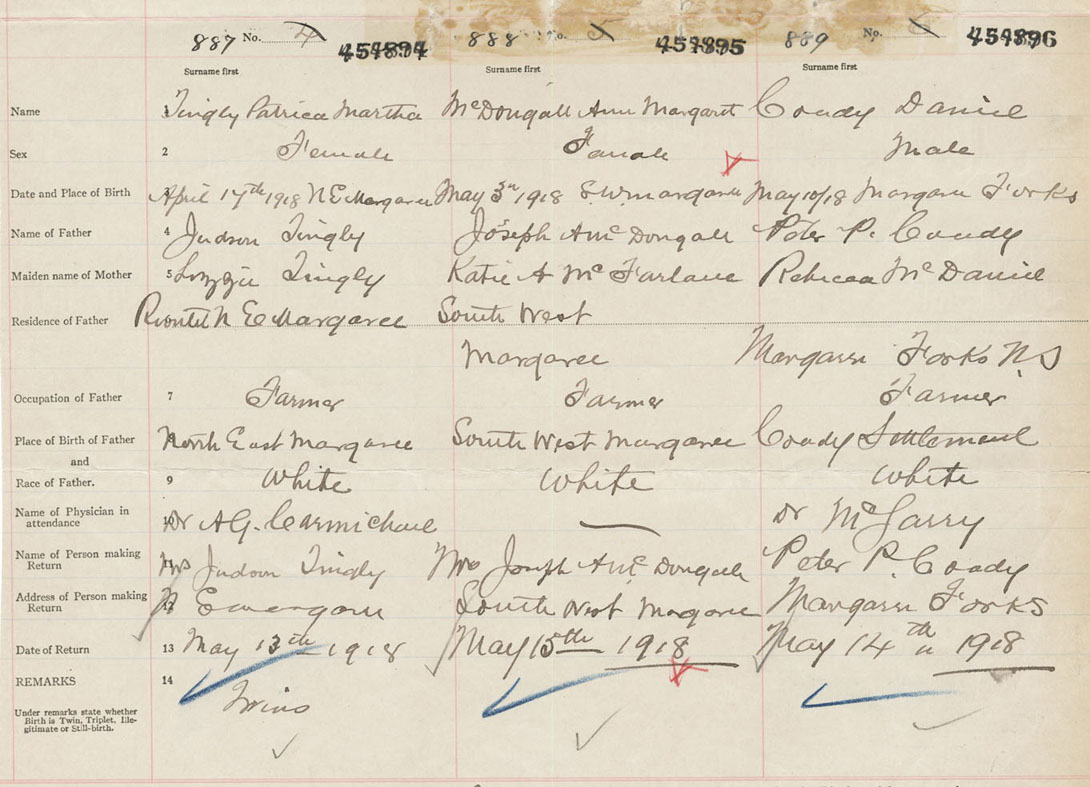 887 No. 4 454894 888 No. 5 454895 889 No. 6 454896
Surname first Surname first Surname first
Name 1 Tingly Patricia Martha McDongall Ann Margaret Coady Daniel
Sex 2 Female Female Male
Date and Place of Birth 3 April 17th 1918 N E Margaree May 3rd 1918 S.W. margaree May 10/18 Margaree Forks
Name of Father 4 Judson Tingly Joseph A McDongall Peter P. Coady
Maiden name of Mother 5 Lizzie Tingly Katie A McFarlane Rebecca McDaniel
Residence of Father N E Margaree South West
Margaree Margaree Forks N S
Occupation of Father 7 Farmer Farmer Farmer
Place of Birth of Father North East Margaree South West Margaree Coady Settlement
and
Race of Father. 9 White White White
Name of Physician in
attendance Dr A G. Carmichael — Dr McGarry
Name of Person making
Return 11 Mrs Judson Tingly Mrs Joseph A McDongall Peter P. Coady
Address of Person making
Return 12 N E margaree South West Margaree Margaree Forks
Date of Return 13 May 13th 1918 May 15th 1918 May 14th 1918
REMARKS 14
Twins
Under remarks state whether
Birth is Twin, Triplet, Ille-
gitimate or Still-birth.